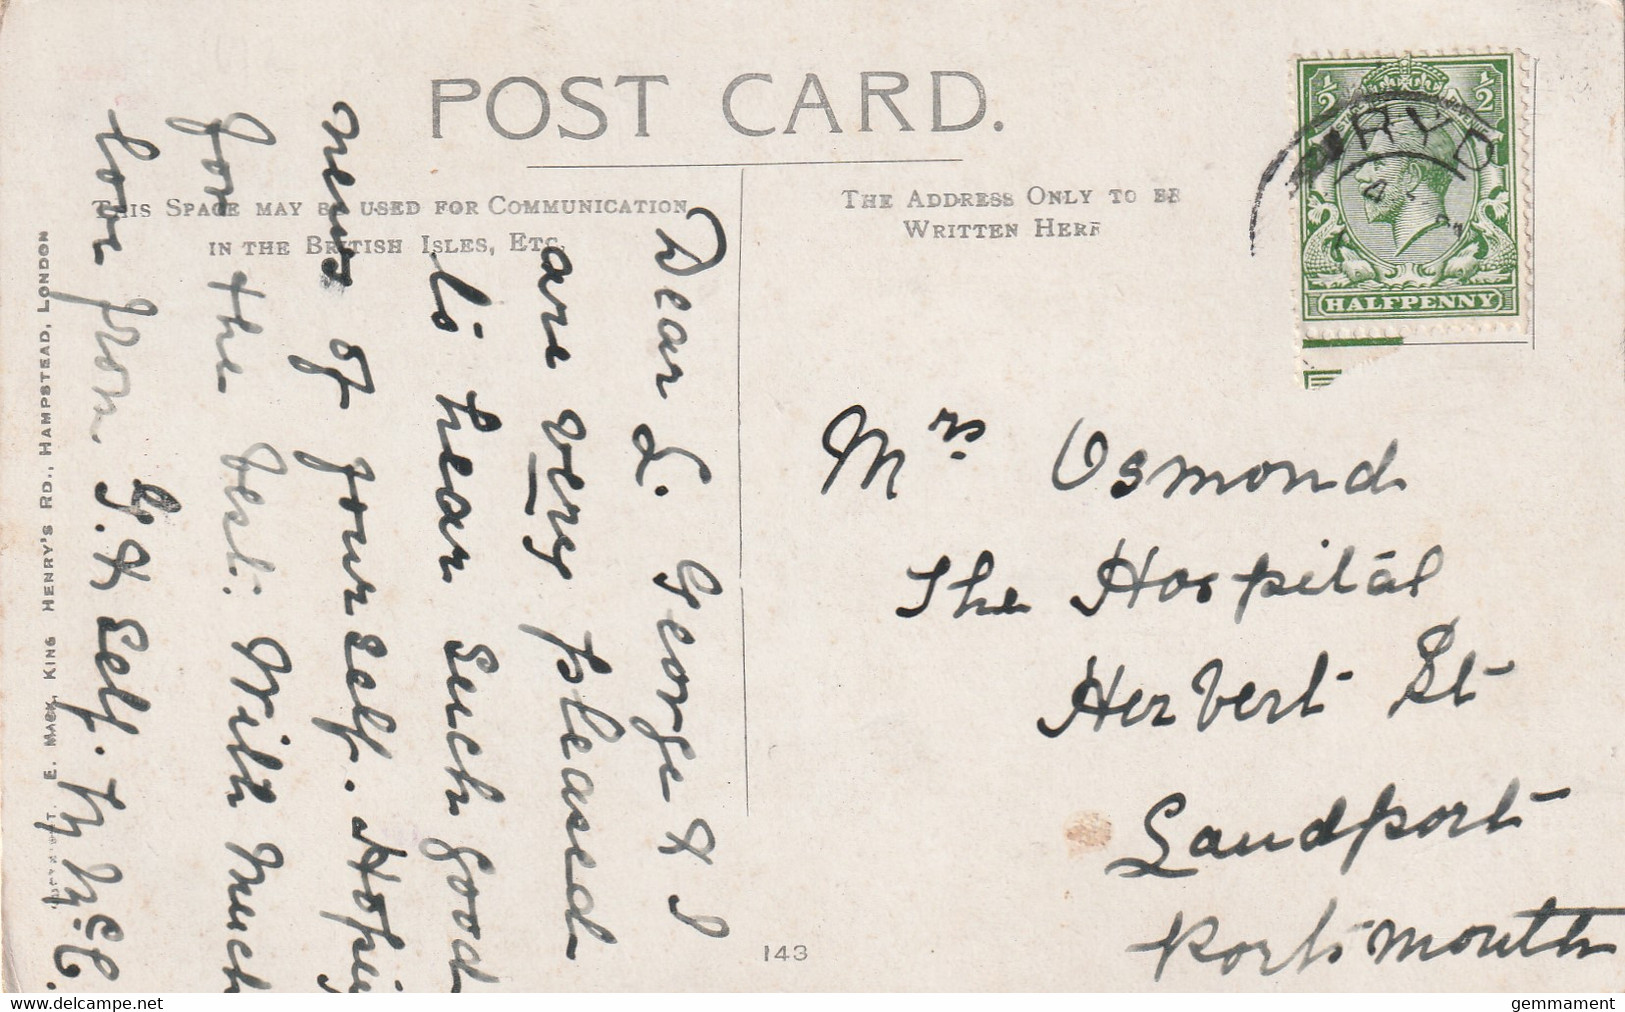 POST CARD.
THIS SPACE MAY BE USED FOR COMMUNICATION
IN THE BRITISH ISLES, ETC.
THE ADDRESS ONLY TO BE
WRITTEN HERE
½ ½
HALFPENNY
RYD
Dear L. George & I
are very pleased
to hear such good
news of yourself. Hoping
for the best: With much
love from G. & Self.
Mrs Osmond
The Hospital
Herbert St
Landport
Portsmouth
E. MACK, KING HENRY'S RD., HAMPSTEAD, LONDON
143
www.delcampe.net
gemmament